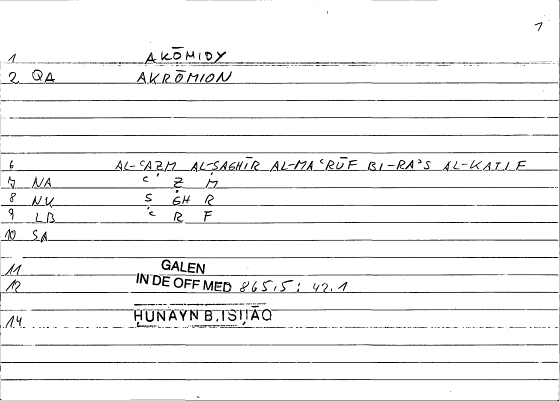 1
1 AKŌMIDY
2 QA AKRŌMION
6 AL-ʿAẒM AL-ṢAGHĪR AL-MAʿRŪF BI-RAʾS AL-KATIF
7 NA ʿ Ẓ M
8 NK Ṣ GH R
9 LB ʿ R F
10 SA
11 GALEN
12 IN DE OFF MED 865.5 : 42.1
14 ḤUNAYN B. ISḤĀQ